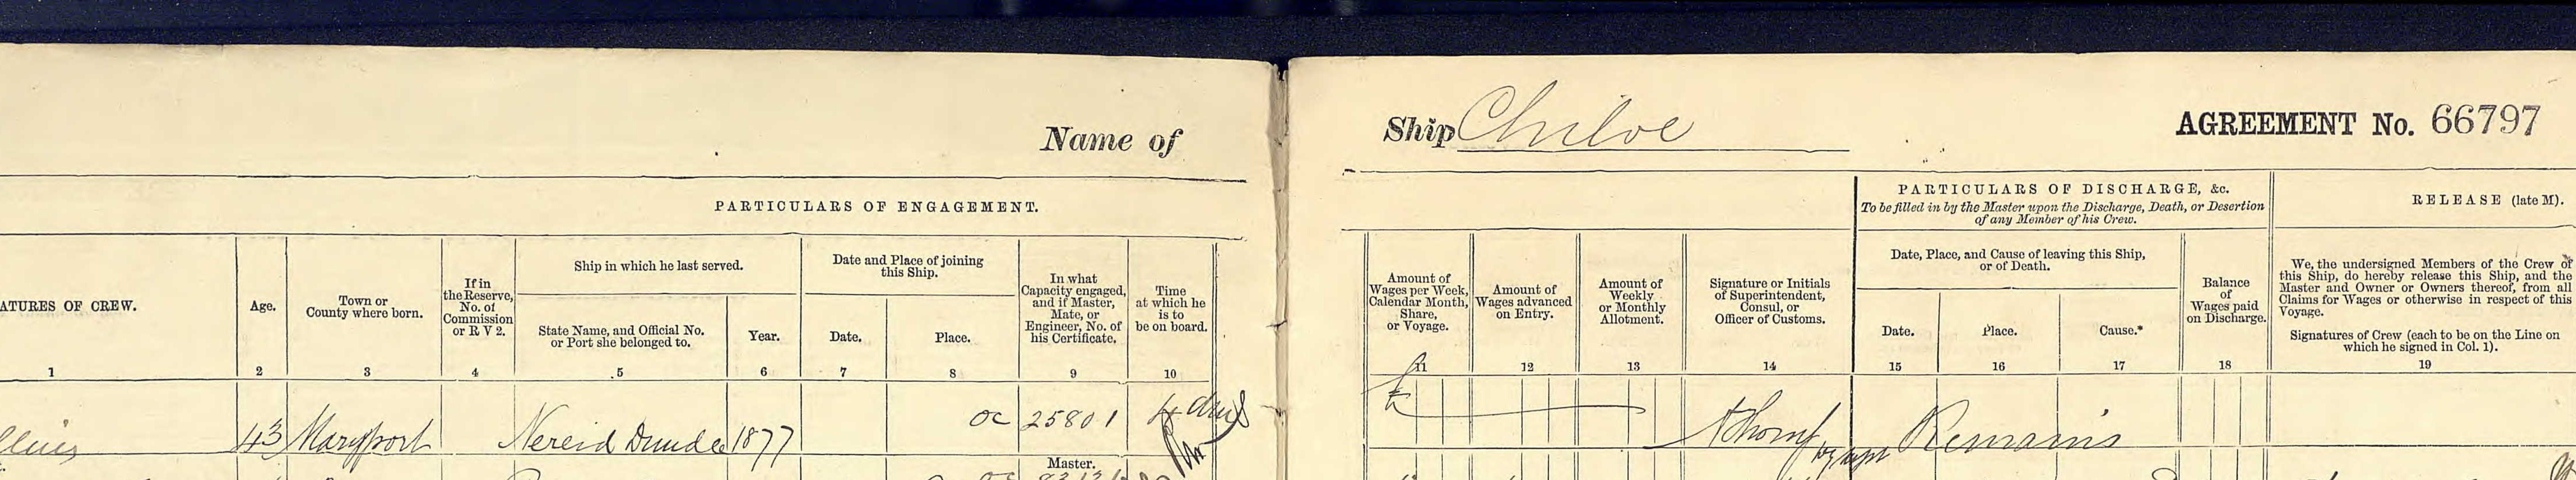 Name of
Ship Chiloe
AGREEMENT No. 66797
PARTICULARS OF ENGAGEMENT.
PARTICULARS OF DISCHARGE, &c.
To be filled in by the Master upon the Discharge, Death, or Desertion
of any Member of his Crew.
RELEASE (late M).
ATURES OF CREW.
1
Age.
2
Town or
County where born.
3
If in
the Reserve,
No. of
Commission
or R V 2.
4
Ship in which he last served.
State Name, and Official No.
or Port she belonged to.
5
Year.
6
Date and Place of joining
this Ship.
Date.
7
Place.
8
In what
Capacity engaged,
and if Master,
Mate, or
Engineer, No. of
his Certificate.
9
Time
at which he
is to
be on board.
10
Amount of
Wages per Week,
Calendar Month,
Share,
or Voyage.
11
Amount of
Wages advanced
on Entry.
12
Amount of
Weekly
or Monthly
Allotment.
13
Signature or Initials
of Superintendent,
Consul, or
Officer of Customs.
14
Date, Place, and Cause of leaving this Ship,
or of Death.
Date.
15
Place.
16
Cause.*
17
Balance
of
Wages paid
on Discharge.
18
We, the undersigned Members of the Crew of
this Ship, do hereby release this Ship, and the
Master and Owner or Owners thereof, from all
Claims for Wages or otherwise in respect of this
Voyage.
Signatures of Crew (each to be on the Line on
which he signed in Col. 1).
19
43 Maryport Nereid Dundee 1877 OC 25801 Remains
Master.